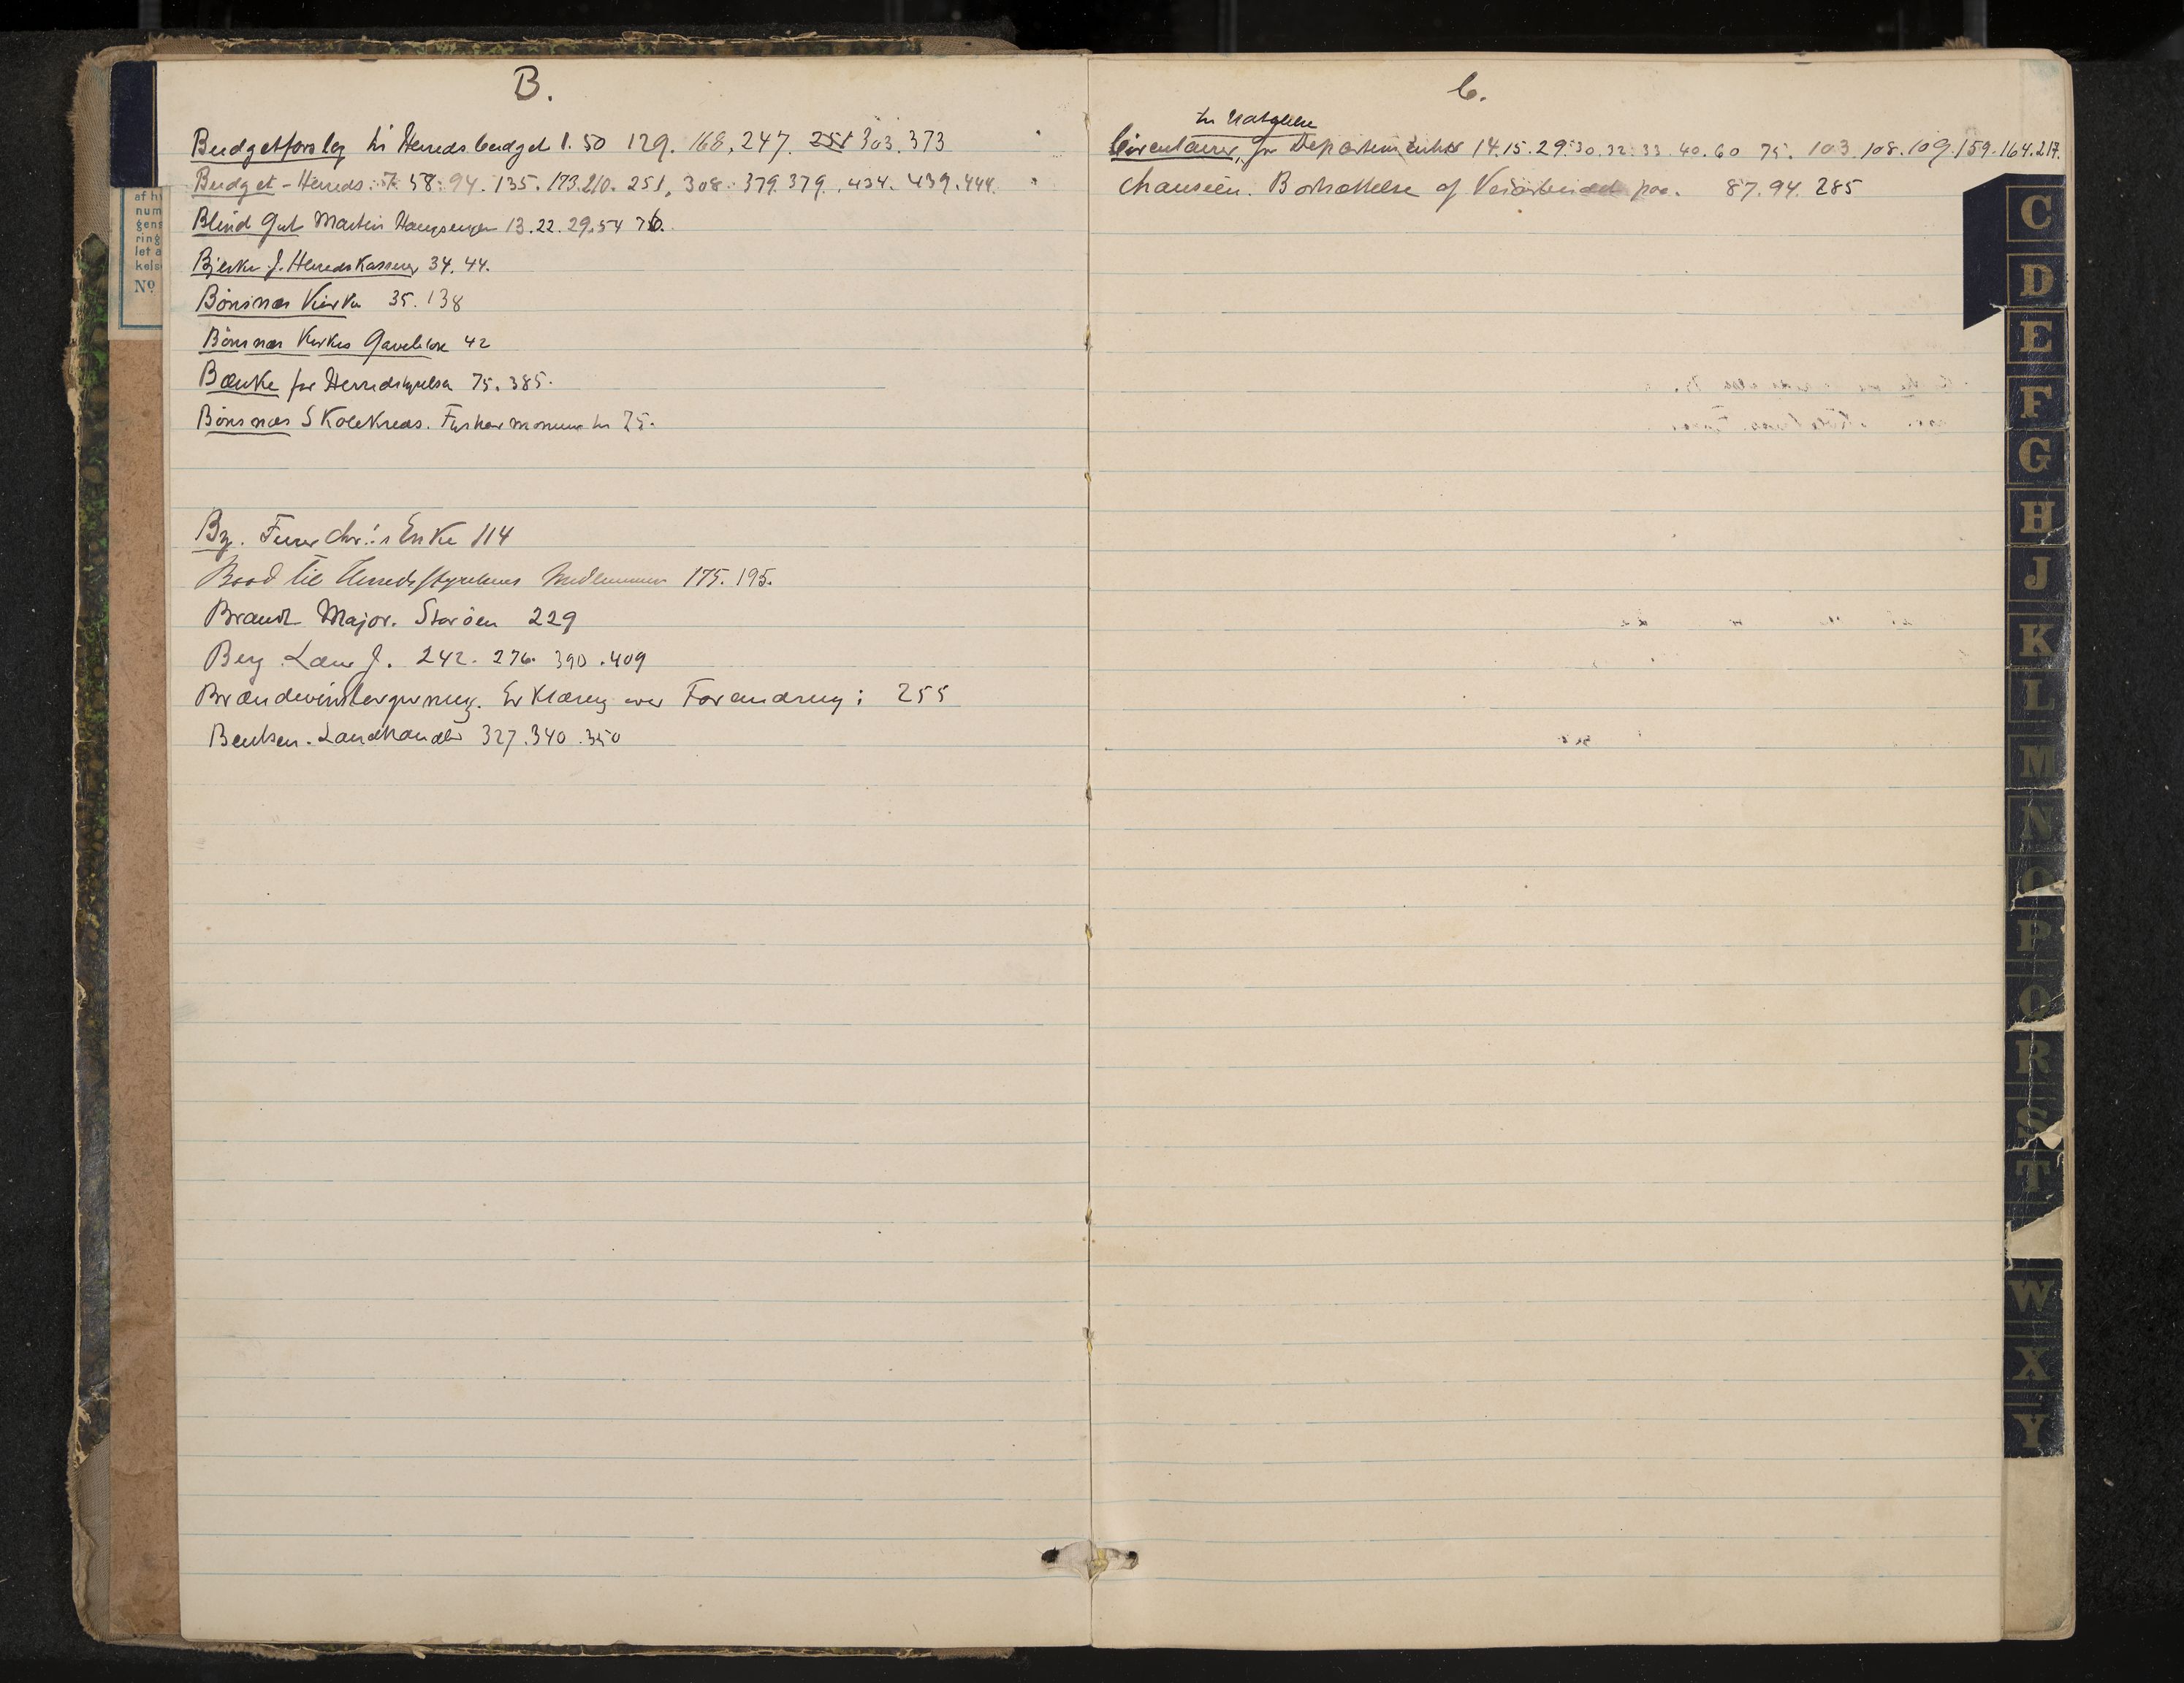 B.
Budgetforslag til Herredsbudget 1. 50 129. 168, 247. 251 303. 373
Budget - Herreds: 7. 58. 94. 135. 173. 210. 251, 308. 379. 379. 434. 439. 444.
Blind Gut Martin 13. 22. 29. 54 76.
Bjerke J. Herredskasserer 34. 44.
Bönsnæs Kirke 35. 138
Bönsnæs Kirkes 42
Bænke for Herredstyrelsen 75. 385.
Bönsnæs Skolekreds. 75.
By. Enke 114
Brod til Herredsstyrelsens Medlemmer 175. 195.
Brandt Major. Storöen 229
Berg Lars J. 242. 276. 390. 409
Brændevinslovgivning. Erklæring over Forandring i 255
Bentsen. Landhandler 327. 340. 350
C.
Circulærer, fra Departementet 14. 15. 29. 30. 32. 33. 40. 60 75. 103 108. 109. 159. 164. 217.
Chauseen. Bortsættelse af Veiarbeidet paa. 87. 94. 285
af h
num
gens
ring
let a
kels
No
C
D
E
F
G
H
J
K
L
M
N
O
P
Q
R
S
T
W
X
Y